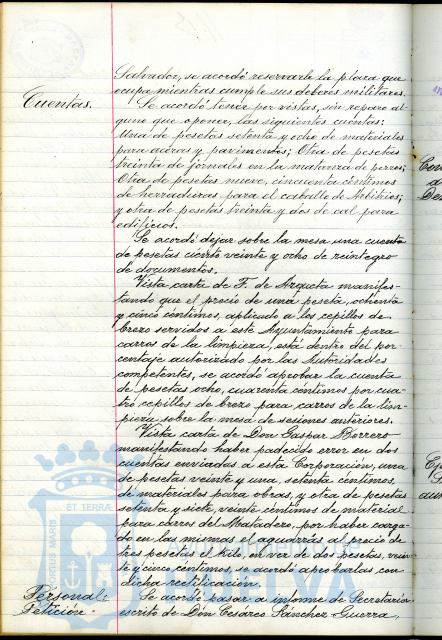 Salvador, se acordó reservarle la plaza que
ocupa mientras cumple sus deberes militares.
Cuentas.
Se acordó tener por vistas, sin reparo al-
guno que oponer, las siguientes cuentas:
Una de pesetas setenta y ocho de materiales
para aceras y pavimentos; Otra de pesetas
treinta de jornales en la matanza de perros;
Otra de pesetas nueve, cincuenta céntimos
de herraduras para el caballo de Arbitrios;
y otra de pesetas treinta y dos de cal para
edificios.
Se acordó dejar sobre la mesa una cuenta
de pesetas ciento veinte y ocho de reintegro
de documentos.
Vista carta de F. de Azqueta manifes-
tando que el precio de una peseta, ochenta
y cinco céntimos, aplicado a los cepillos de
brezo servidos a este Ayuntamiento para
carros de la limpieza, está dentro del por-
centaje autorizado por las Autoridades
competentes, se acordó aprobar la cuenta
de pesetas ocho, cuarenta céntimos por cua-
tro cepillos de brezo para carros de la lim-
pieza sobre la mesa de sesiones anteriores.
Vista carta de Don Gaspar Borrero
manifestando haber padecido error en dos
cuentas enviadas a esta Corporación, una
de pesetas veinte y una, setenta céntimos,
de materiales para obras, y otra de pesetas
setenta y siete, veinte céntimos de material
para carros del Matadero, por haber carga-
do en las mismas el aguarrás al precio de
tres pesetas el kilo, en vez de dos pesetas, vein-
te y cinco céntimos, se acordó aprobarlas, con
dicha rectificación.
Personal:
Petición.
Se acordó pasar a informe de Secretaría
escrito de Don Cesareo Sánchez-Guerra,
PORTUS MARIS
ET TERRAE
HUELVA